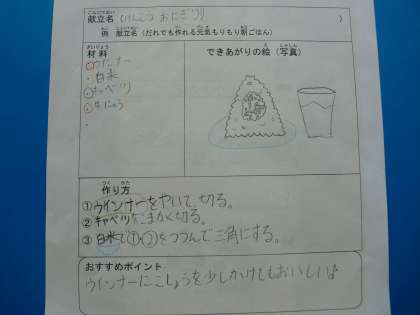 献立名(けんこうおにぎり)
例 献立名(だれでも作れる元気もりもり朝ごはん)
材料
ウインナー
白米
キャベツ
牛にゅう
できあがりの絵(写真)
作り方
①ウインナーをやいて切る。
②キャベツをこまかく切る。
③白米で①②をつつんで三角にする。
おすすめポイント
ウインナーにこしょうを少しかけてもおいしいよ